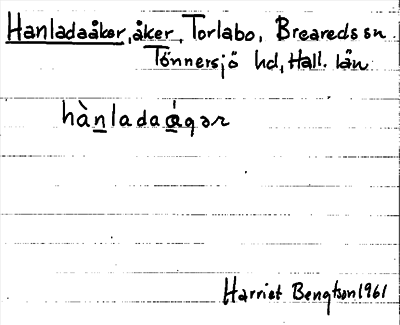 Hanladaåker, åker, Torlabo, Breareds sn.
Tönnersjö hd, Hall. län
hànladaágər
Harriet Bengtson 1961